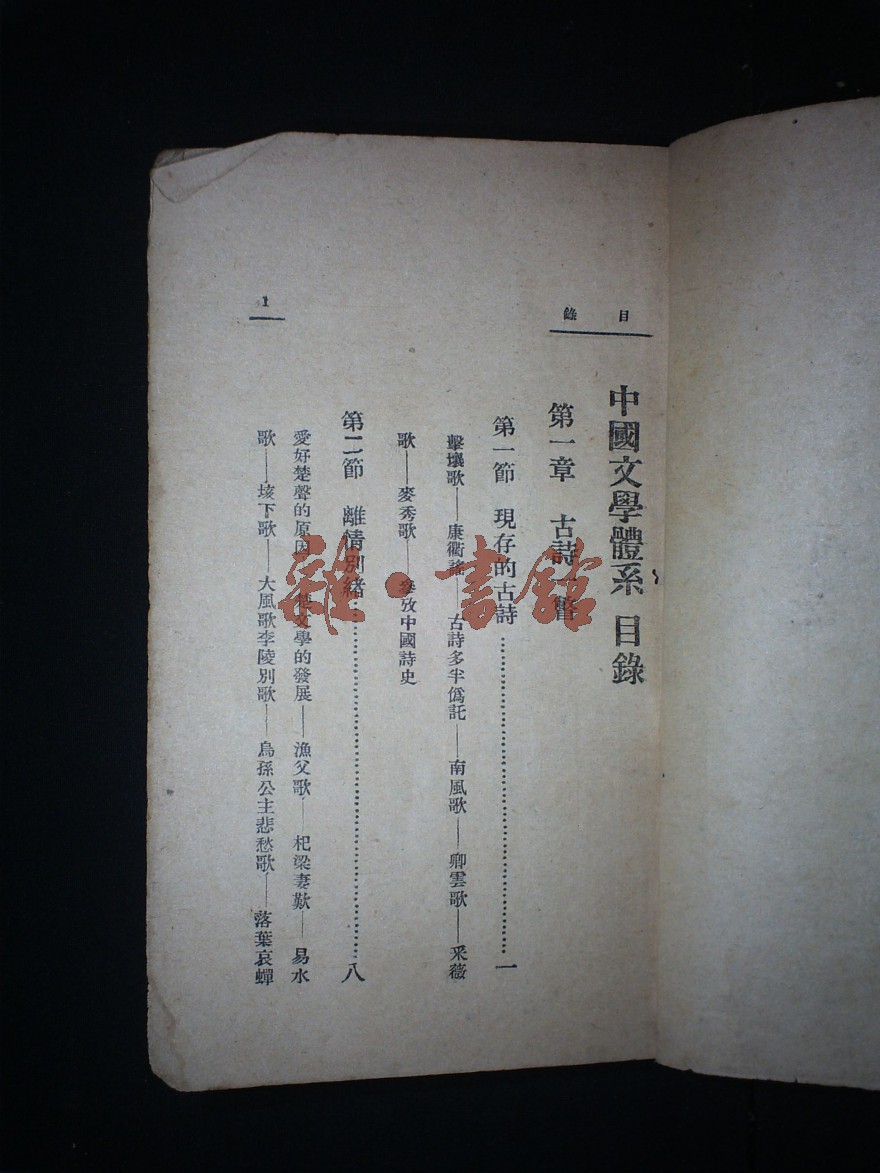 目錄
中國文學體系 目錄
第一章 古詩一瞥
第一節 現存的古詩……一
擊壤歌——康衢謠——古詩多半僞託——南風歌——卿雲歌——采薇
歌——麥秀歌——參攷中國詩史
第二節 離情別緒……八
愛好楚聲的原因——楚文學的發展——漁父歌——杞梁妻歎——易水
歌——垓下歌——大風歌李陵別歌——烏孫公主悲愁歌——落葉哀蟬
1
雜·書館